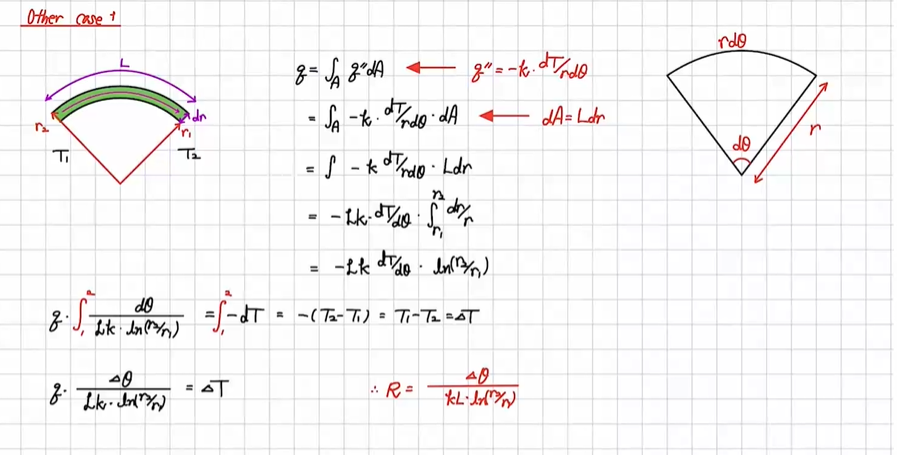 Other case 1
L
dr
r₂
r₁
T₁
T₂
q = ∫_A q″dA ← q″ = -k · dT/rdθ
= ∫_A -k · dT/rdθ · dA ← dA = Ldr
= ∫ -k dT/rdθ · Ldr
= -Lk · dT/dθ · ∫_{r₁}^{r₂} dr/r
= -Lk dT/dθ · ln(r₂/r₁)
q · ∫₁² dθ / (Lk · ln(r₂/r₁)) = ∫₁² -dT = -(T₂-T₁) = T₁-T₂ = ΔT
q · Δθ / (Lk · ln(r₂/r₁)) = ΔT
∴ R = Δθ / (kL · ln(r₂/r₁))
rdθ
dθ
r